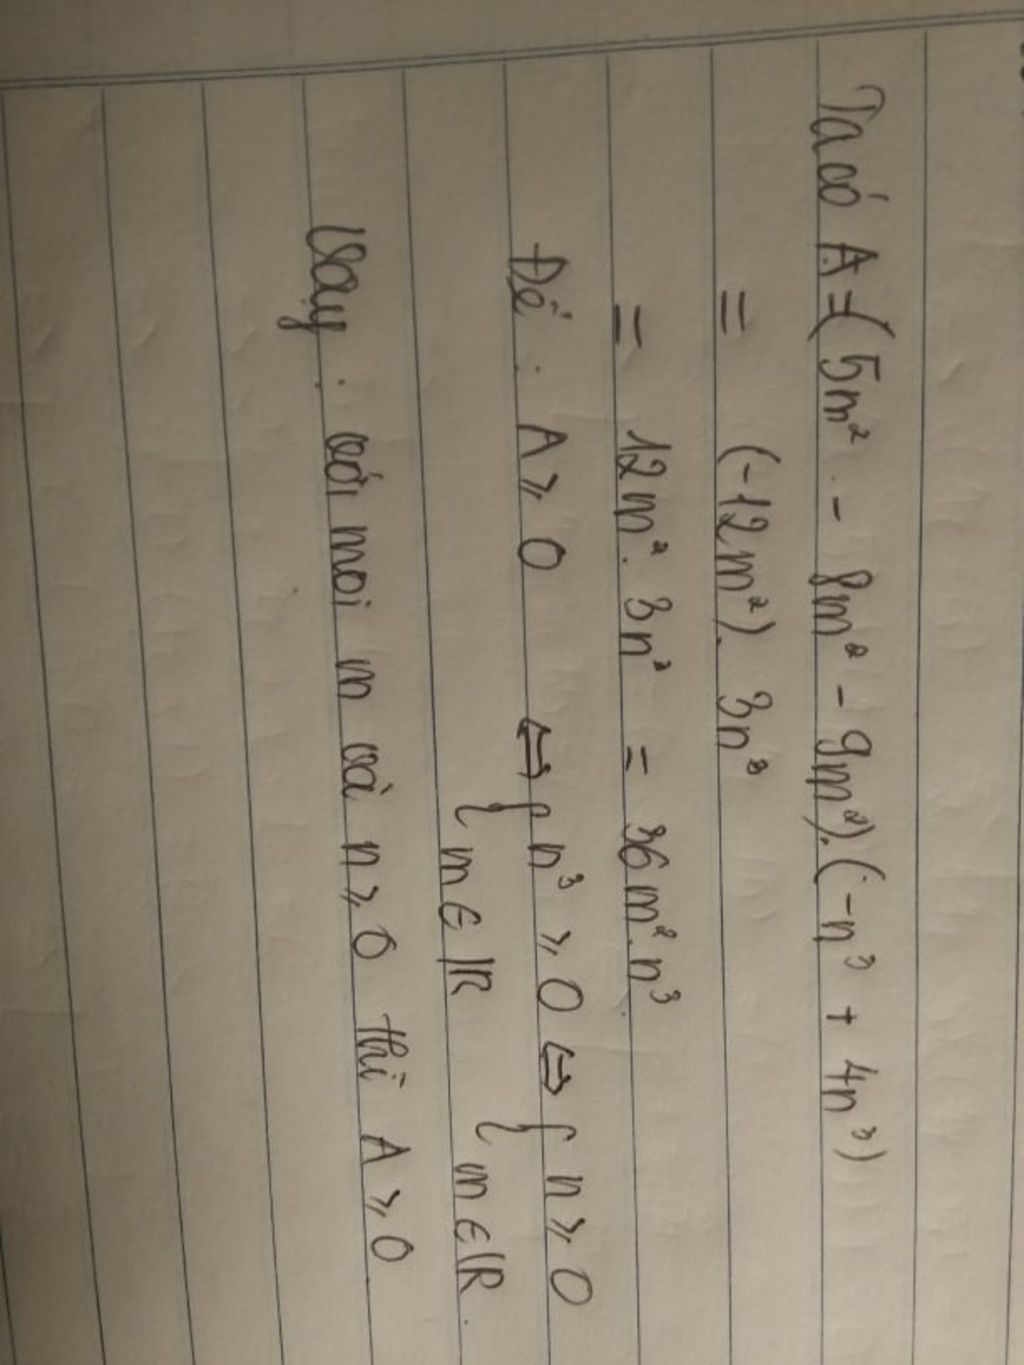 Ta có A = (5m² - 8m² - 9m²).(-n³ + 4n³)
= (-12m²). 3n³
= 12m². 3n² = 36m².n³
Để : A ⩾ 0 ⇔ { n³ ⩾ 0 ⇔ { n ⩾ 0
m ∈ R m ∈ R.
Vậy : với mọi m và n ⩾ 0 thì A ⩾ 0